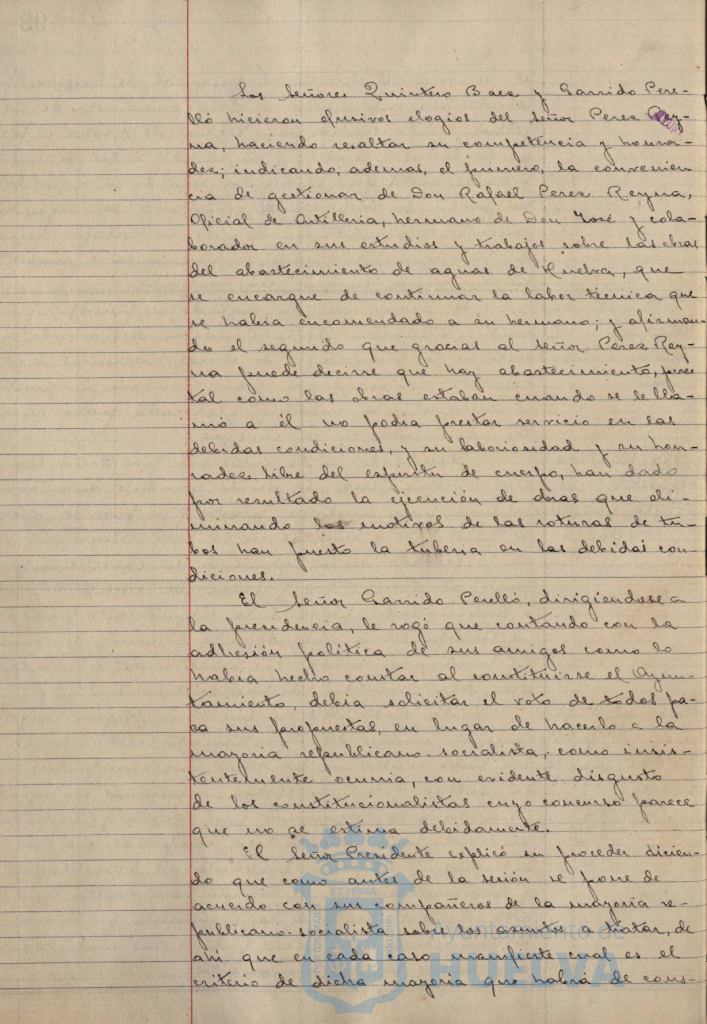 Los Señores Quintero Baez y Garrido Pere-
lló hicieron efusivos elogios del Señor Perez Rey-
na, haciendo resaltar su competencia y honra-
dez; indicando, ademas, el primero, la convenien-
cia de gestionar de Don Rafael Perez Reyna,
Oficial de Artilleria, hermano de Don José y cola-
borador en sus estudios y trabajos sobre las obras
del abastecimiento de aguas de Huelva, que
se encargue de continuar la labor técnica que
se habia encomendado a su hermano; y afirman-
do el segundo que gracias al Señor Perez Rey-
na puede decirse que hay abastecimiento, pues
tal como las obras estaban cuando se le lla-
mó a él no podia prestar servicio en las
debidas condiciones, y su laboriosidad y su hon-
radez, libre del espiritu de cuerpo, han dado
por resultado la ejecución de obras que eli-
minando los motivos de las roturas de tu-
bos han puesto la tuberia en las debidas con-
diciones.
El Señor Garrido Perelló, dirigiendose a
la presidencia, le rogó que contando con la
adhesión politica de sus amigos como lo
habia hecho constar al constituirse el Ayun-
tamiento, debia solicitar el voto de todos pa-
ra sus propuestas, en lugar de hacerlo a la
mayoria republicano-socialista, como insis-
tentemente ocurria, con evidente disgusto
de los constitucionalistas cuyo concurso parece
que no se estima debidamente.
El Señor Presidente explicó su proceder dicien-
do que como antes de la sesión se pone de
acuerdo con sus compañeros de la mayoria re-
publicano-socialista sobre los asuntos a tratar, de
ahi que en cada caso manifieste cual es el
criterio de dicha mayoria que habrá de cons-
Ayuntamiento de
HUELVA